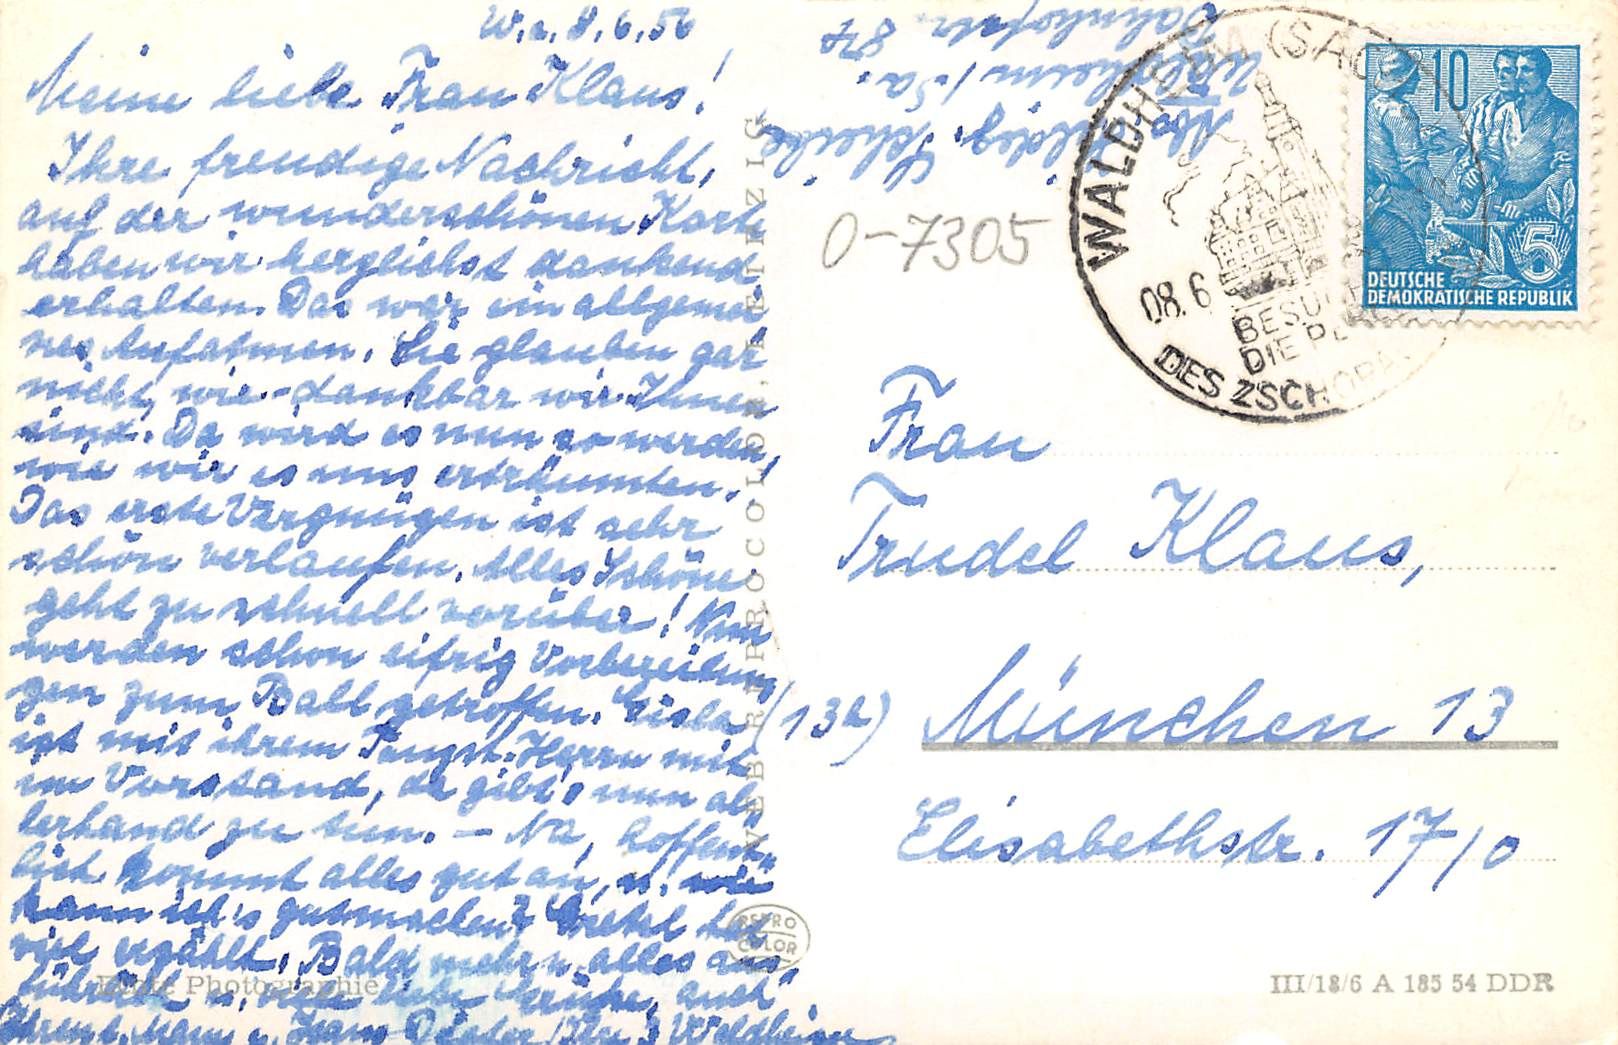 W., 8.6.56
Meine liebe Frau Klaus!
Ihre freudige Nachricht,
auf der wunderschönen Karte
haben wir herzlichst dankend
erhalten. Das war ein allgemei
nes Aufatmen. Sie glauben gar
nicht, wie dankbar wir Ihnen
sind. Da wird es nun so werden,
wie wir es uns erträumten.
Das erste Vergnügen ist sehr
schön verlaufen. Alles Schöne
geht zu schnell vorüber! Nun
werden schon eifrig Vorbereitun
gen zum Ball getroffen. Gisela
ist mit ihrem Tanzst. Herrn mit
im Vorstand, da gibt's nun al
lerhand zu tun. – Na, hoffent
lich kommt alles gut an, u. wie
kann ich's gutmachen? Gretel hat
viel erzählt. Bald mehr u. alles aus
führlich u. viele liebe Grüße, auch
Ihrem l. Mann u. Ihre 3 Waldheimer
Echte Photographie
VEB REPROCOLOR, LEIPZIG
REPRO
COLOR
Abs. Hildeg. Scheibe
Waldheim/Sa.
Bahnhofstr. 87
0-7305
WALDHEIM (SACHS
08.6
BESUCHT
DIE PE
DES ZSCHOPA
10
5
DEUTSCHE
DEMOKRATISCHE REPUBLIK
Frau
Trudel Klaus,
(13b) München 13
Elisabethstr. 17/0
III/18/6 A 185 54 DDR